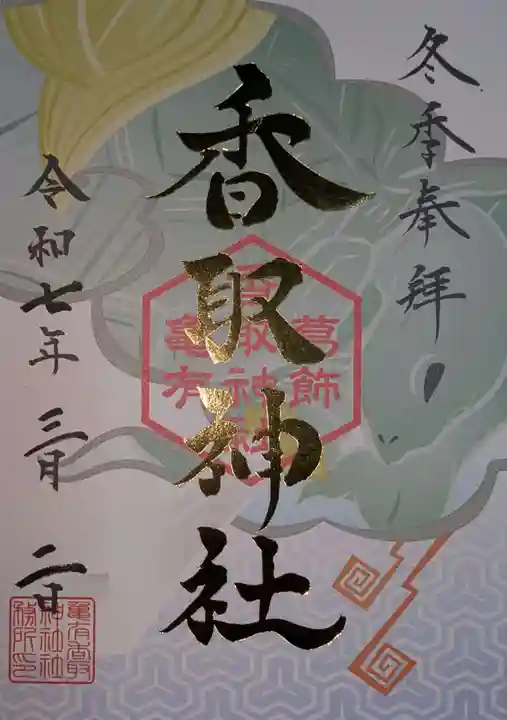 冬季奉拝
香取神社
葛飾
香取神社
亀有
令和七年 三月 二日
亀有香取
神社社
務所印